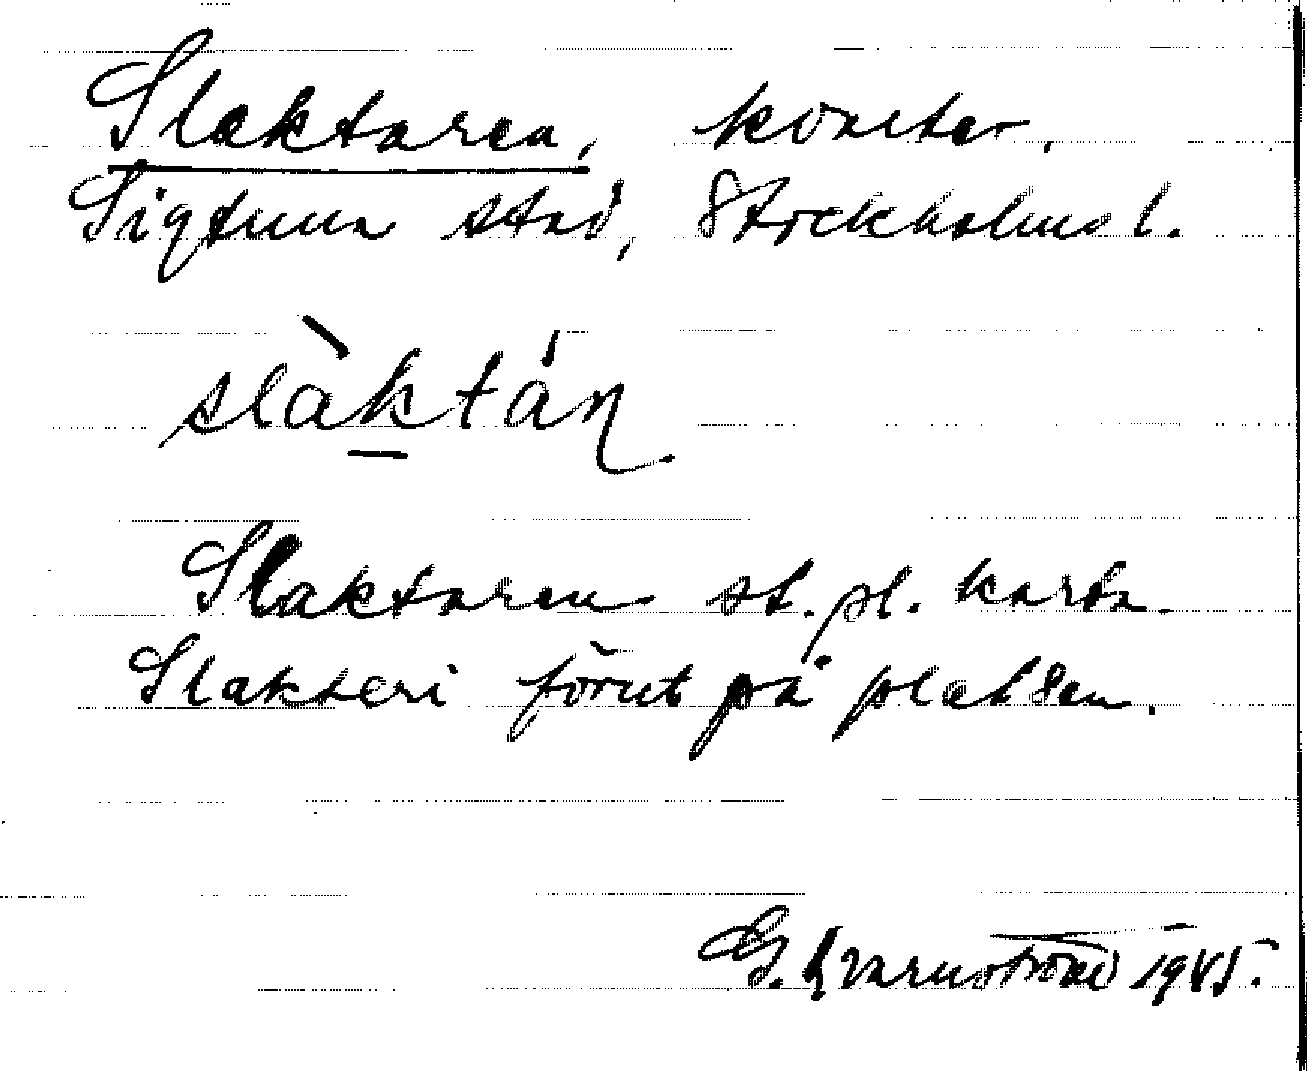 Slaktaren, kvarter.
Sigtuna stad, Stockholms l.
slàktáɳ
Slaktaren st. pl. karta.
Slakteri förut på platsen.
G. Qvarnström 1945.